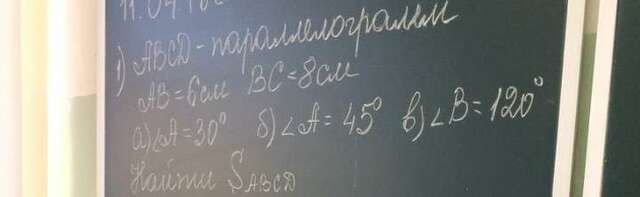 11.04.
1) ABCD - параллелограмм
AB = 6см BC = 8см
а) ∠A = 30° б) ∠A = 45° в) ∠B = 120°
Найти S ABCD